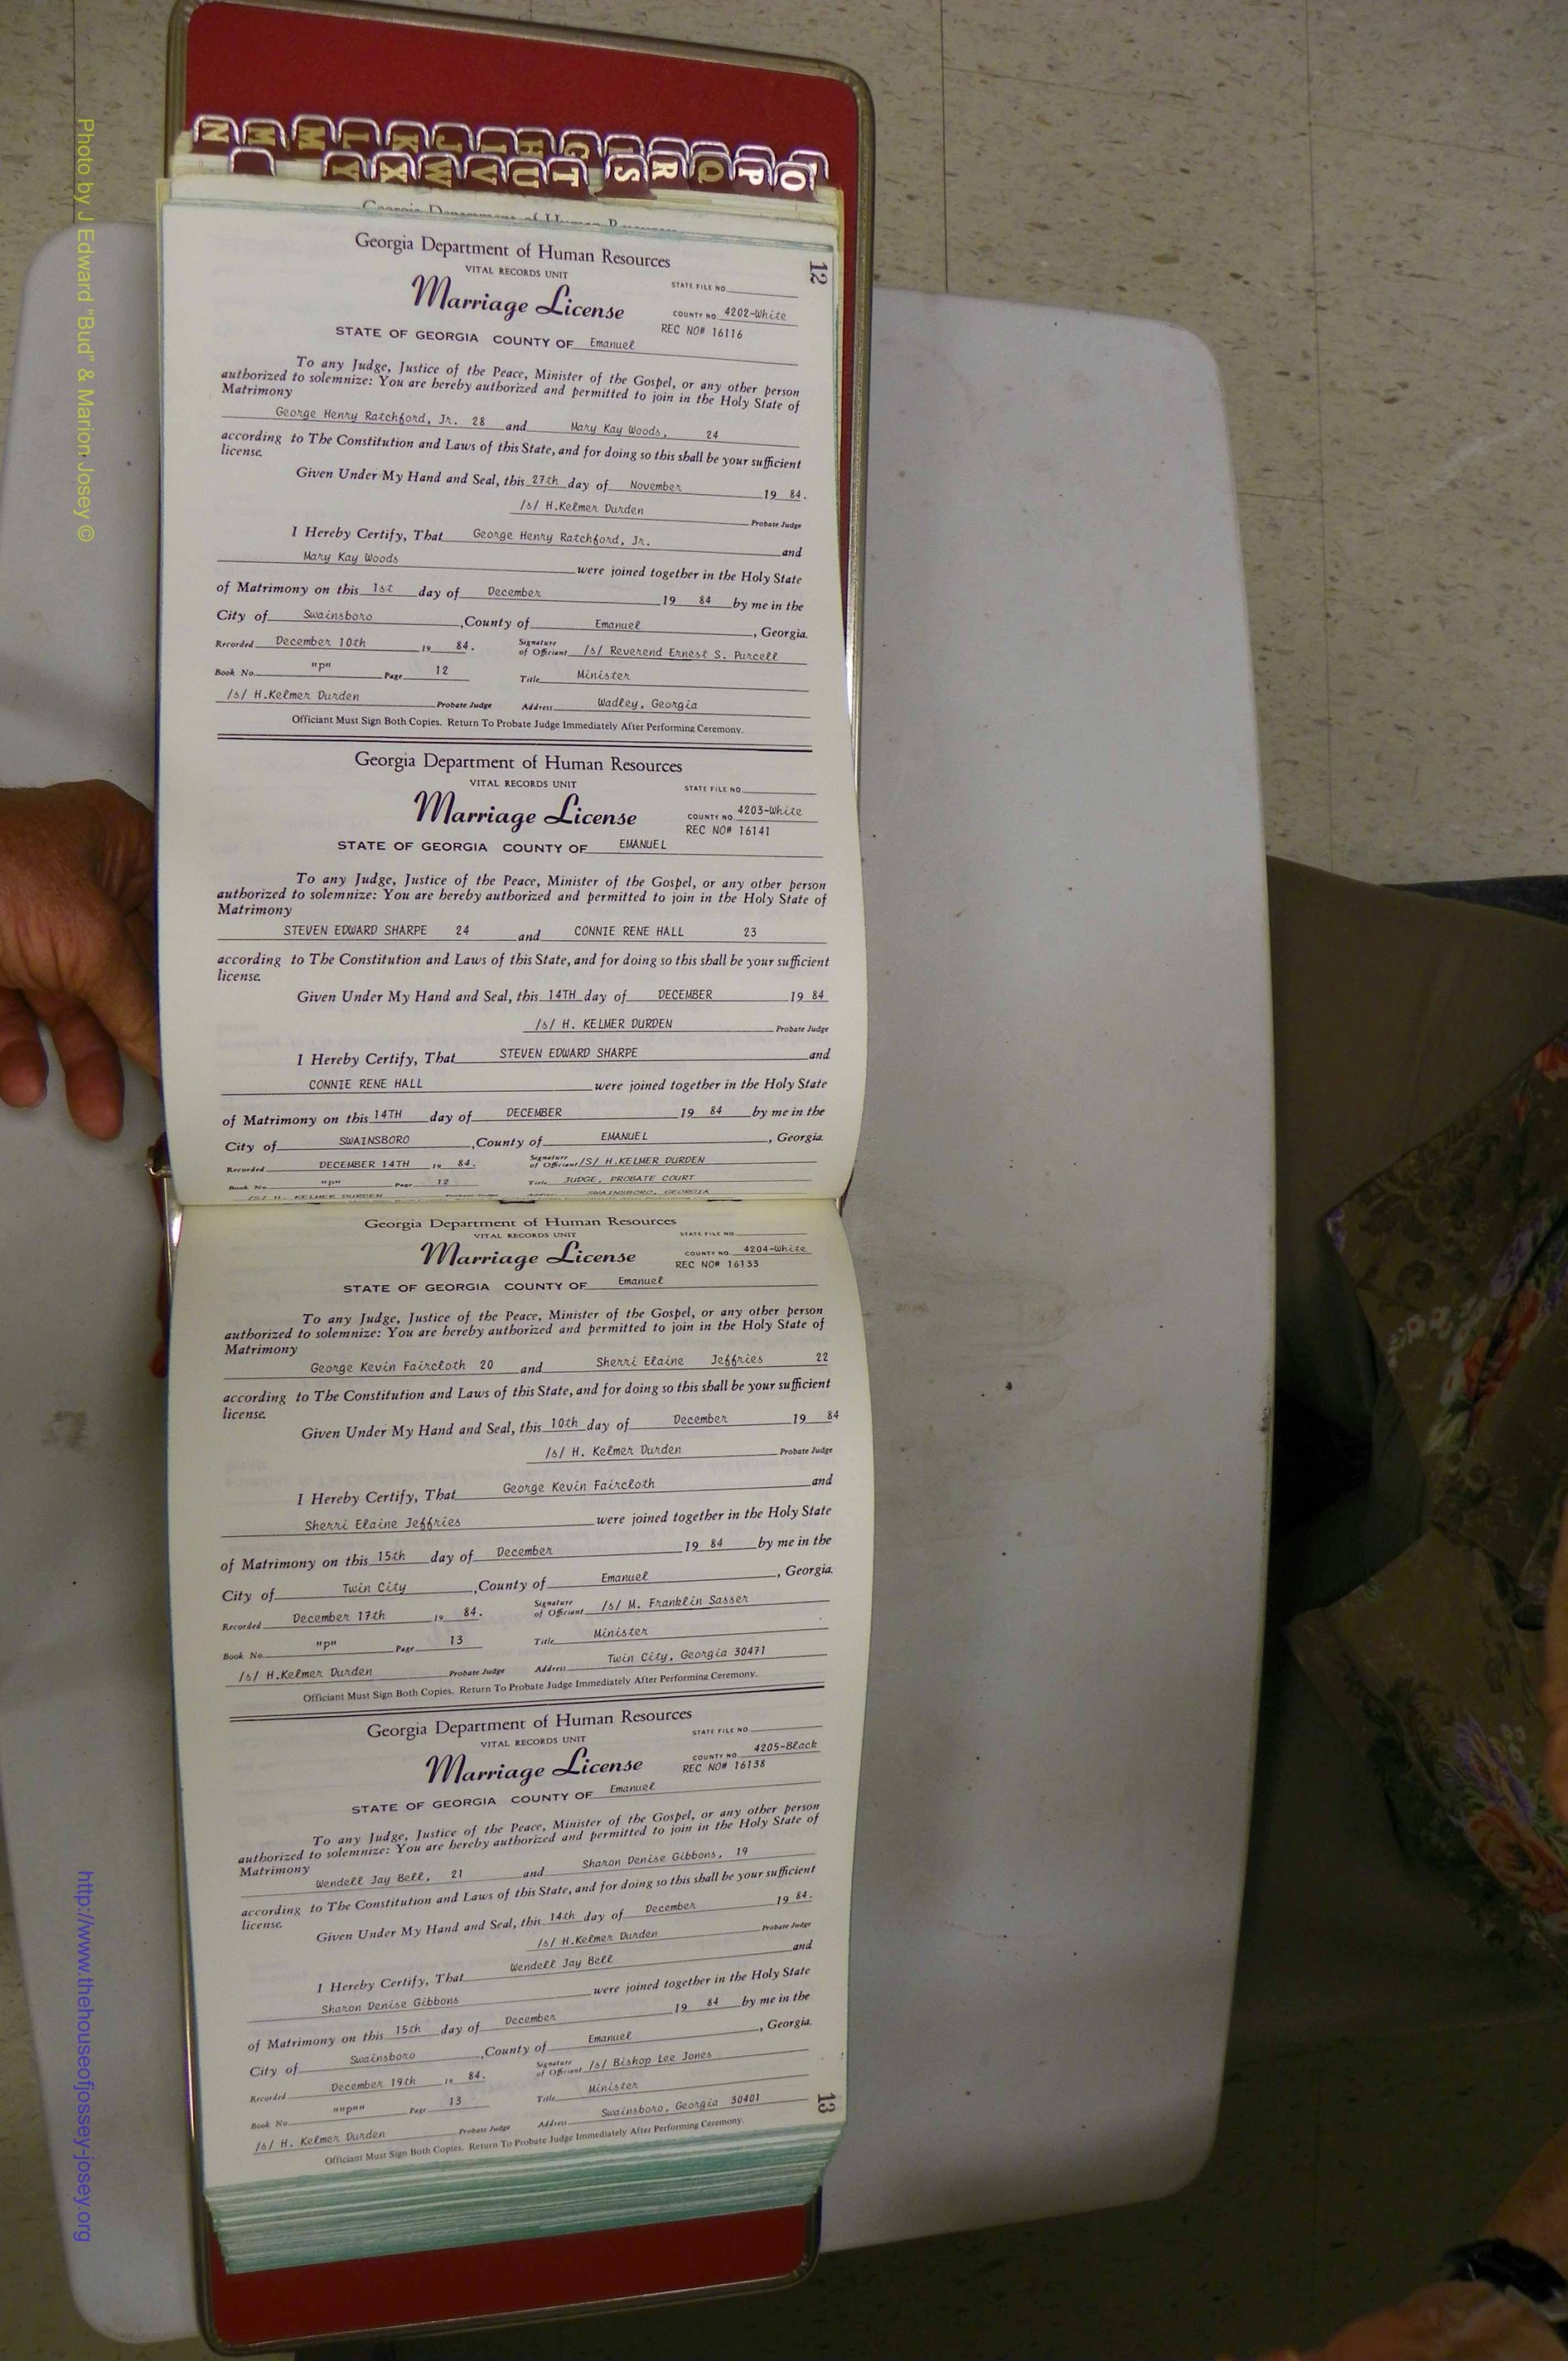 Photo by J Edward "Bud" & Marion Josey ©
http://www.thehouseofjossey-josey.org
N M M L K J I H G
Y X W V U T S R Q P O
Georgia Department of Human Resources
12
Georgia Department of Human Resources
VITAL RECORDS UNIT
STATE FILE NO.
Marriage License
COUNTY NO. 4202-White
REC NO# 16116
STATE OF GEORGIA COUNTY OF Emanuel
To any Judge, Justice of the Peace, Minister of the Gospel, or any other person
authorized to solemnize: You are hereby authorized and permitted to join in the Holy State of
Matrimony
George Henry Ratchford, Jr. 28 and Mary Kay Woods, 24
according to The Constitution and Laws of this State, and for doing so this shall be your sufficient
license.
Given Under My Hand and Seal, this 27th day of November 19 84.
/s/ H.Kelmer Durden
Probate Judge
I Hereby Certify, That George Henry Ratchford, Jr. and
Mary Kay Woods were joined together in the Holy State
of Matrimony on this 1st day of December 19 84 by me in the
City of Swainsboro, County of Emanuel, Georgia.
Recorded December 10th 19 84. Signature of Officiant /s/ Reverend Ernest S. Purcell
Book No. "p" Page 12 Title Minister
/s/ H.Kelmer Durden Probate Judge Address Wadley, Georgia
Officiant Must Sign Both Copies. Return To Probate Judge Immediately After Performing Ceremony.
Georgia Department of Human Resources
VITAL RECORDS UNIT
STATE FILE NO.
Marriage License
COUNTY NO. 4203-White
REC NO# 16141
STATE OF GEORGIA COUNTY OF EMANUEL
To any Judge, Justice of the Peace, Minister of the Gospel, or any other person
authorized to solemnize: You are hereby authorized and permitted to join in the Holy State of
Matrimony
STEVEN EDWARD SHARPE 24 and CONNIE RENE HALL 23
according to The Constitution and Laws of this State, and for doing so this shall be your sufficient
license.
Given Under My Hand and Seal, this 14TH day of DECEMBER 19 84
/s/ H. KELMER DURDEN
Probate Judge
I Hereby Certify, That STEVEN EDWARD SHARPE and
CONNIE RENE HALL were joined together in the Holy State
of Matrimony on this 14TH day of DECEMBER 19 84 by me in the
City of SWAINSBORO, County of EMANUEL, Georgia.
Recorded DECEMBER 14TH 19 84. Signature of Officiant /S/ H.KELMER DURDEN
Book No. "p" Page 12 Title JUDGE, PROBATE COURT
/S/ H. KELMER DURDEN Probate Judge Address SWAINSBORO, GEORGIA
Georgia Department of Human Resources
VITAL RECORDS UNIT
STATE FILE NO.
Marriage License
COUNTY NO. 4204-White
REC NO# 16133
STATE OF GEORGIA COUNTY OF Emanuel
To any Judge, Justice of the Peace, Minister of the Gospel, or any other person
authorized to solemnize: You are hereby authorized and permitted to join in the Holy State of
Matrimony
George Kevin Faircloth 20 and Sherri Elaine Jeffries 22
according to The Constitution and Laws of this State, and for doing so this shall be your sufficient
license.
Given Under My Hand and Seal, this 10th day of December 19 84
/s/ H. Kelmer Durden
Probate Judge
I Hereby Certify, That George Kevin Faircloth and
Sherri Elaine Jeffries were joined together in the Holy State
of Matrimony on this 15th day of December 19 84 by me in the
City of Twin City, County of Emanuel, Georgia.
Recorded December 17th 19 84. Signature of Officiant /s/ M. Franklin Sasser
Book No. "p" Page 13 Title Minister
/s/ H.Kelmer Durden Probate Judge Address Twin City, Georgia 30471
Officiant Must Sign Both Copies. Return To Probate Judge Immediately After Performing Ceremony.
Georgia Department of Human Resources
VITAL RECORDS UNIT
STATE FILE NO.
Marriage License
COUNTY NO. 4205-Black
REC NO# 16138
STATE OF GEORGIA COUNTY OF Emanuel
To any Judge, Justice of the Peace, Minister of the Gospel, or any other person
authorized to solemnize: You are hereby authorized and permitted to join in the Holy State of
Matrimony
Wendell Jay Bell, 21 and Sharon Denise Gibbons, 19
according to The Constitution and Laws of this State, and for doing so this shall be your sufficient
license.
Given Under My Hand and Seal, this 14th day of December 19 84.
/s/ H.Kelmer Durden
Probate Judge
I Hereby Certify, That Wendell Jay Bell and
Sharon Denise Gibbons were joined together in the Holy State
of Matrimony on this 15th day of December 19 84 by me in the
City of Swainsboro, County of Emanuel, Georgia.
Recorded December 19th 19 84. Signature of Officiant /s/ Bishop Lee Jones
Book No. ""p"" Page 13 Title Minister
/s/ H. Kelmer Durden Probate Judge Address Swainsboro, Georgia 30401
Officiant Must Sign Both Copies. Return To Probate Judge Immediately After Performing Ceremony.
13